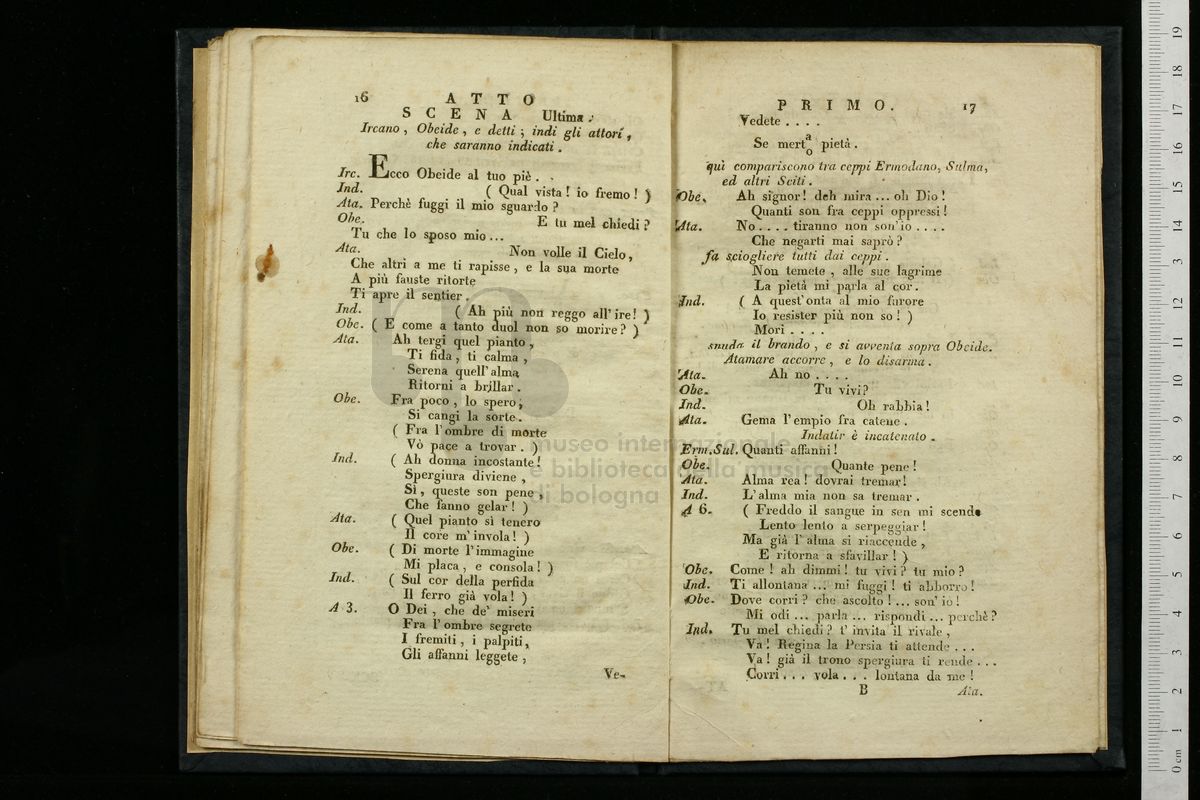 16 ATTO
SCENA Ultima.
Ircano, Obeide, e detti; indi gli attori,
che saranno indicati.
Irc. Ecco Obeide al tuo piè. .
Ind. ( Qual vista! io fremo! )
Ata. Perchè fuggi il mio sguardo?
Obe. E tu mel chiedi?
Tu che lo sposo mio...
Ata. Non volle il Cielo,
Che altri a me ti rapisse, e la sua morte
A più fauste ritorte
Ti apre il sentier.
Ind. ( Ah più non reggo all'ire! )
Obe. ( E come a tanto duol non so morire? )
Ata. Ah tergi quel pianto,
Ti fida, ti calma,
Serena quell'alma
Ritorni a brillar.
Obe. Fra poco, lo spero,
Si cangi la sorte.
( Fra l'ombre di morte
Vò pace a trovar. )
Ind. ( Ah donna incostante!
Spergiura diviene,
Sì, queste son pene,
Che fanno gelar! )
Ata. ( Quel pianto sì tenero
Il core m'invola! )
Obe. ( Di morte l'immagine
Mi placa, e consola! )
Ind. ( Sul cor della perfida
Il ferro già vola! )
A 3. O Dei, che de' miseri
Fra l'ombre segrete
I fremiti, i palpiti,
Gli affanni leggete,
Ve-
PRIMO. 17
Vedete . . . .
Se merta/o pietà.
quì compariscono tra ceppi Ermodano, Sulma,
ed altri Sciti.
Obe. Ah signor! deh mira ... oh Dio!
Quanti son fra ceppi oppressi!
Ata. No . . . . tiranno non son'io . . . .
Che negarti mai saprò?
fa sciogliere tutti dai ceppi.
Non temete, alle sue lagrime
La pietà mi parla al cor.
Ind. ( A quest'onta al mio furore
Io resister più non so! )
Mori . . . .
snuda il brando, e si avventa sopra Obeide.
Atamare accorre, e lo disarma.
Ata. Ah no . . . .
Obe. Tu vivi?
Ind. Oh rabbia!
Ata. Gema l'empio fra catene.
Indatir è incatenato.
Erm.Sul. Quanti affanni!
Obe. Quante pene!
Ata. Alma rea! dovrai tremar!
Ind. L'alma mia non sa tremar.
A 6. ( Freddo il sangue in sen mi scende
Lento lento a serpeggiar!
Ma già l'alma si riaccende,
E ritorna a sfavillar! )
Obe. Come! ah dimmi! tu vivi? tu mio?
Ind. Ti allontana ... mi fuggi! ti abborro!
Obe. Dove corri? che ascolto! ... son'io!
Mi odi ... parla ... rispondi ... perchè?
Ind. Tu mel chiedi? t'invita il rivale,
Va! Regina la Persia ti attende . . .
Va! già il trono spergiura ti rende . . .
Corri . . . vola . . . lontana da me!
B Ata.
museo internazionale
e biblioteca della musica
di bologna
0 cm 1 2 3 4 5 6 7 8 9 10 11 12 13 14 15 16 17 18 19